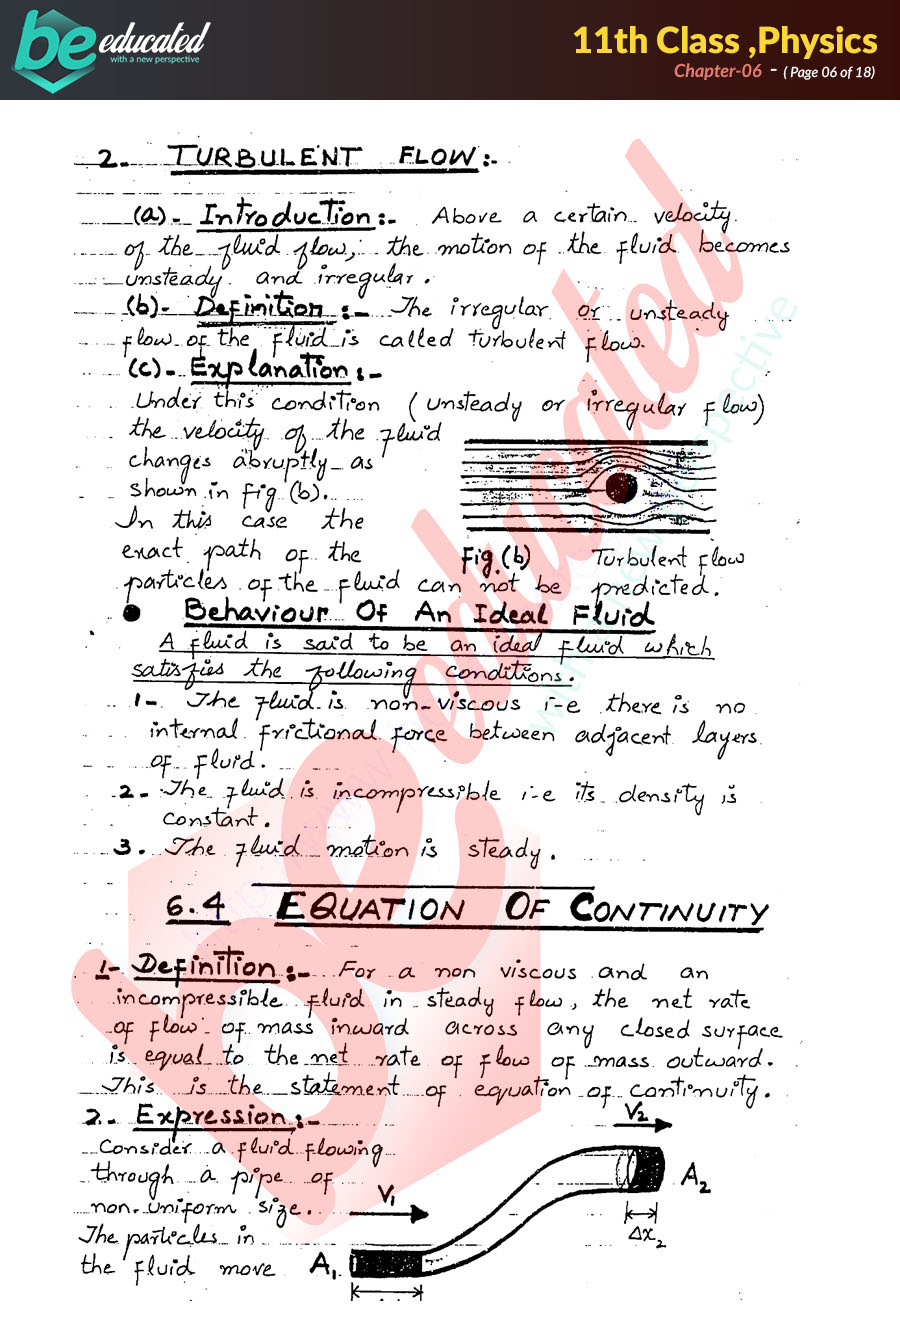 be educated
with a new perspective
11th Class ,Physics
Chapter-06 - ( Page 06 of 18)
2. TURBULENT FLOW:-
(a)- Introduction:- Above a certain velocity
of the fluid flow, the motion of the fluid becomes
unsteady and irregular.
(b)- Definition:- The irregular or unsteady
flow of the fluid is called turbulent flow.
(c)- Explanation:-
Under this condition (unsteady or irregular flow)
the velocity of the fluid
changes abruptly as
shown in fig (b).
In this case the
exact path of the
Fig.(b) Turbulent flow
particles of the fluid can not be predicted.
● Behaviour Of An Ideal Fluid
A fluid is said to be an ideal fluid which
satisfies the following conditions.
1- The fluid is non-viscous i-e there is no
internal frictional force between adjacent layers
of fluid.
2- The fluid is incompressible i-e its density is
constant.
3. The fluid motion is steady.
6.4 EQUATION OF CONTINUITY
1- Definition:- For a non viscous and an
incompressible fluid in steady flow, the net rate
of flow of mass inward across any closed surface
is equal to the net rate of flow of mass outward.
This is the statement of equation of continuity.
2- Expression:-
V2
Consider a fluid flowing
through a pipe of
non-uniform size.
The particles in
the fluid move
V1
A2
Δx2
A1
be educated